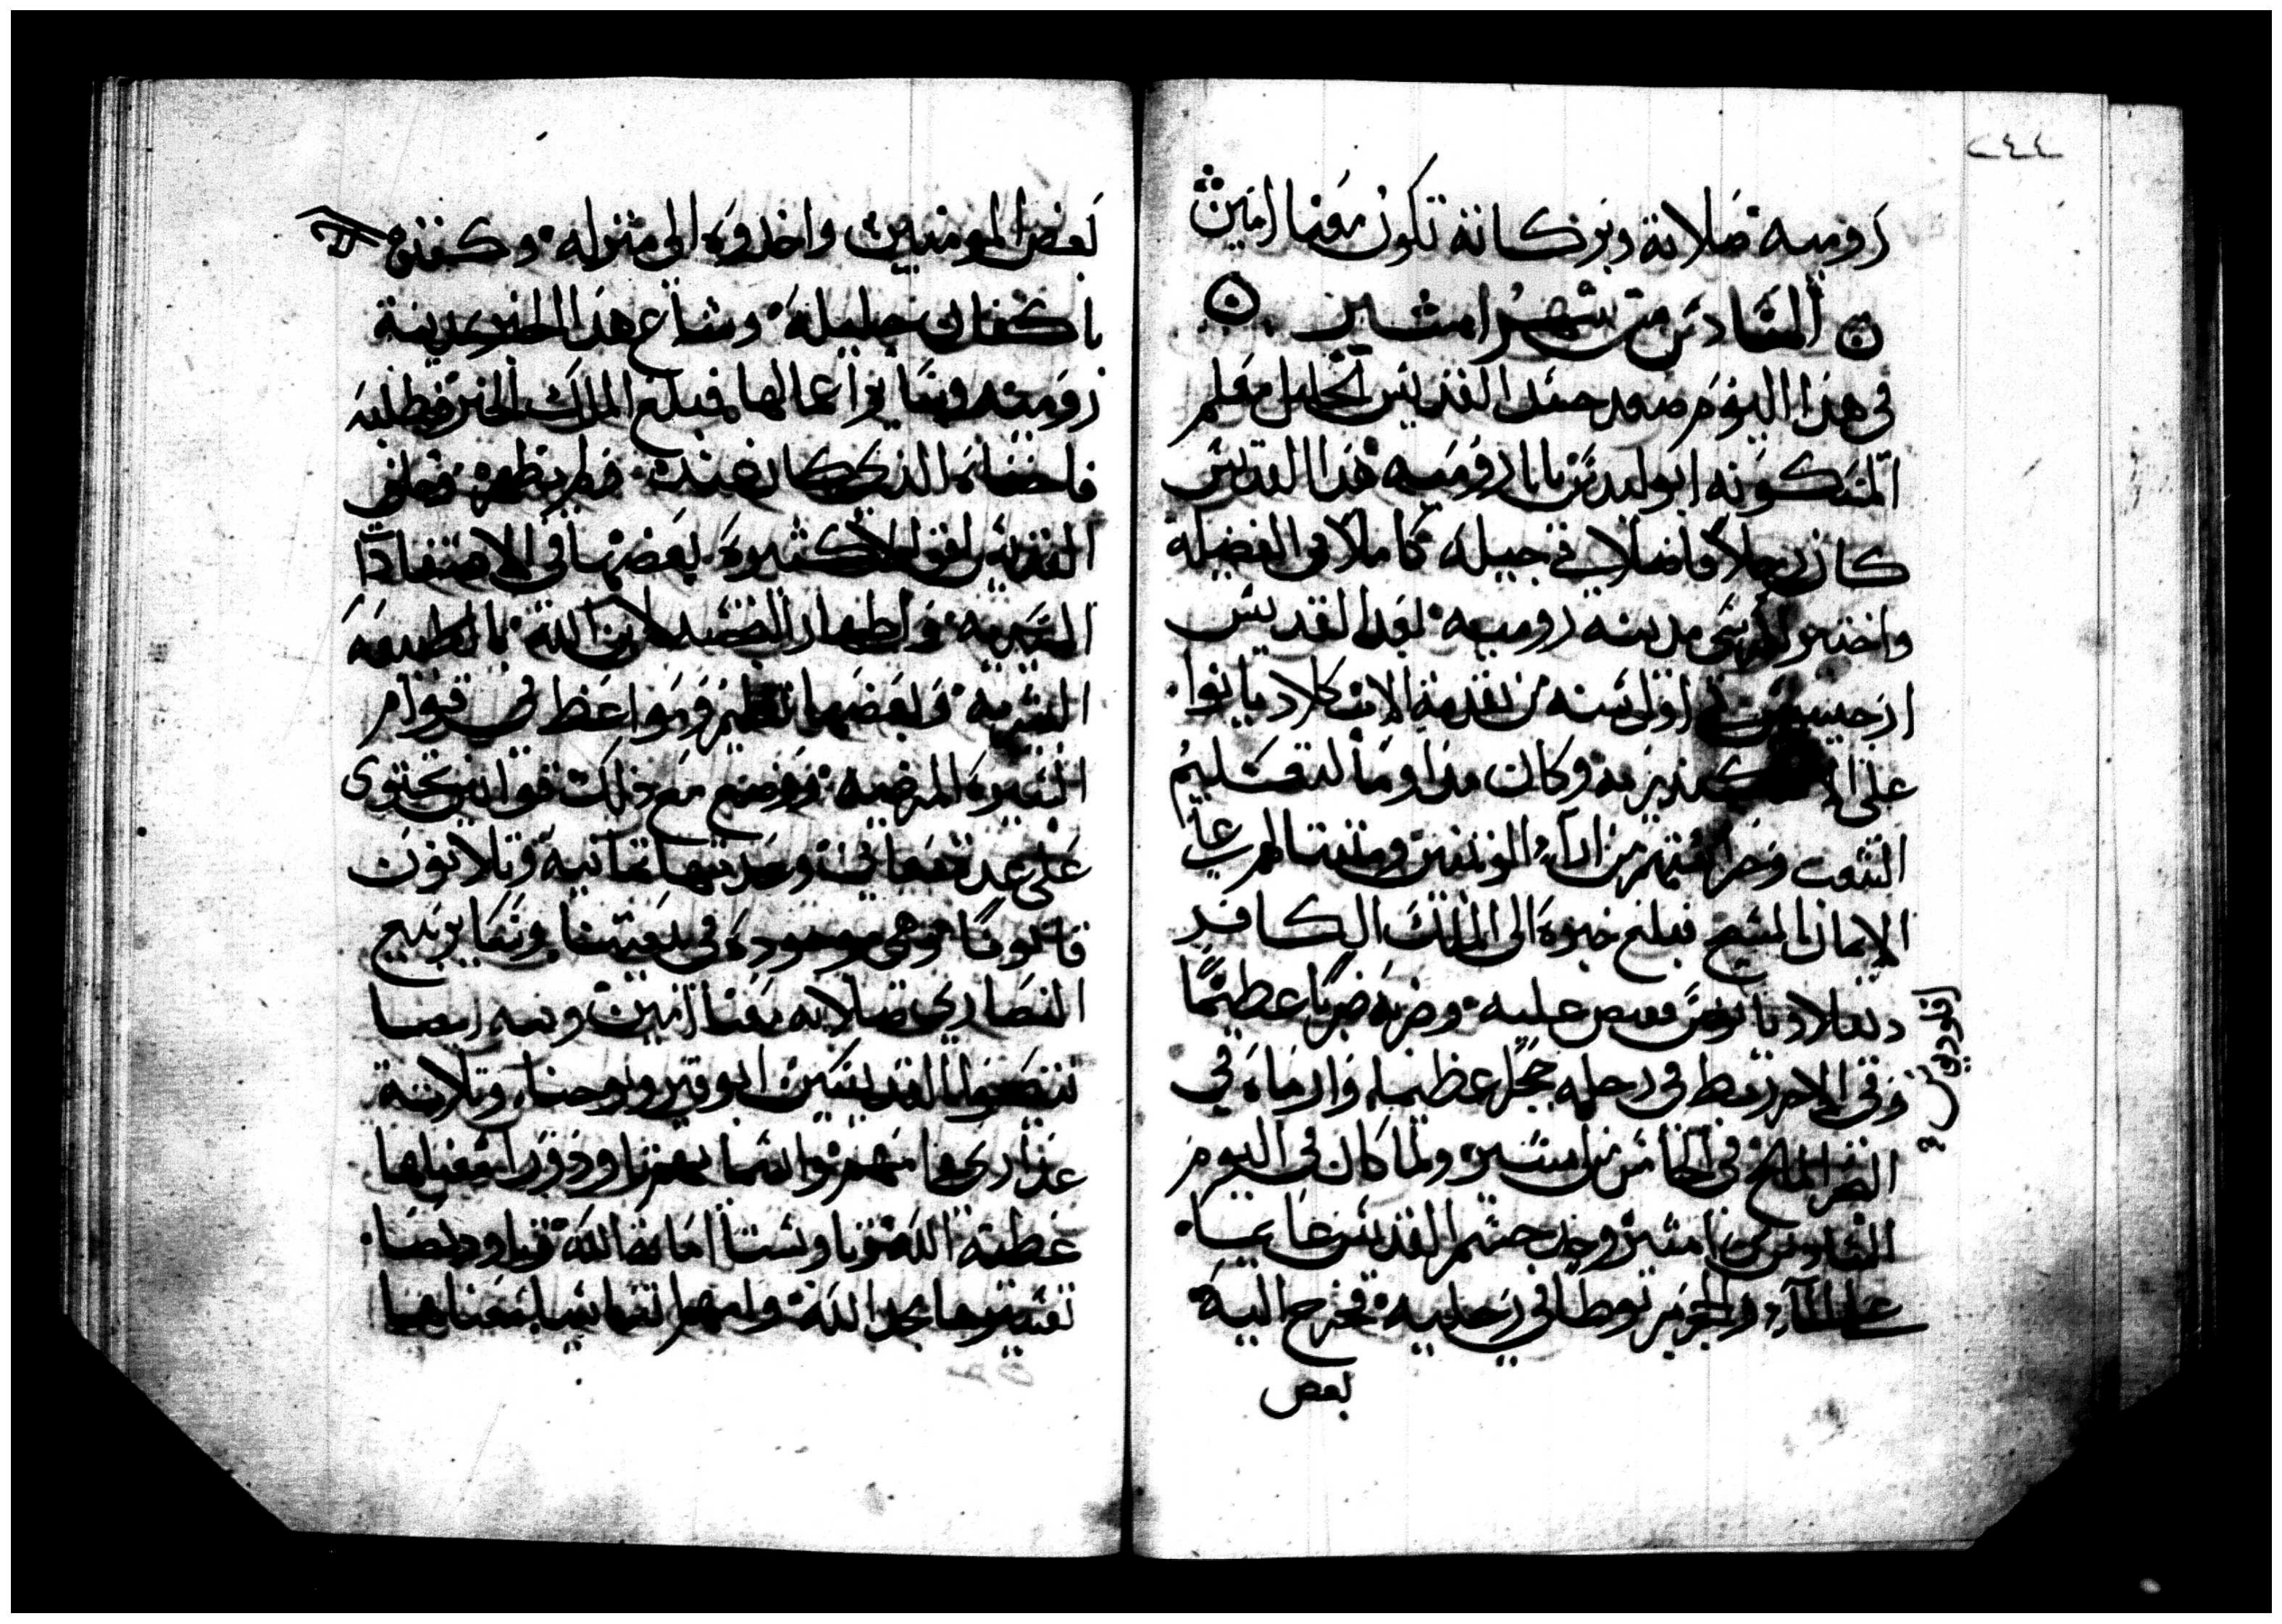 ٢٤٤
رومية صلاته وبركاته تكون معنا امين
السادس من شهر امشير
في هذا اليوم صعد جسد القديس الجليل معلم
المسكونه ابوليدس بابا رومية هذا القديس
كان رجلا فاضلا في جيله كاملا في الفضيلة
واختير لكرسي مدينه روميه بعد القديس
اول سنه من تقدمة الابن كلاديانوا
على وكان مداوما لتعليم
الشعب وحراستهم من اراء الوثنيين ومثبتا لهم على
الايمان بالمسيح فبلغ خبره الى الملك الكافر
قلاديانوس فقبض عليه وضربه ضربا عظيما
وفي الاخر ربط في رجله حجرا عظيما وارماه في
البحر المالح في الخامس من امشير ولما كان في اليوم
السادس من امشير وجد جسم القديس عايما
على الماء والحجر مربوطا في رجليه فخرج اليه
بعض
بعض المومنين واخدوه الى منزله وكفنوه
باكفان جليله وشاع هذا الخبر بمدينة
رومية وساير اعمالها فبلغ الملك الخبر فطلبه
فاخفاه الذي كان عنده فلم يظهره
القديس اقوالا كثيرة بعضها في الاعتقادات
واظهار التجسد لابن الله بالطبيعه
البشرية وبعضها تعليم ومواعظ في قوام
السيره المرضيه ووضع مع ذلك قوانين تحتوي
على عدة معاني وعدتها ثمانية وثلاثون
قانونا وهي موجودة في بيعتنا وساير بيع
النصارى صلاته معنا امين وفيه ايضا
القديسين ابوقير ويوحنا وثلاثة
عذارى وامهم واسماهم تاودورا تفسيرها
عطية الله وتاوبستا امانة الله وتاودكسيا
تفسيرها مجد الله وامهم اثناسيا معناها